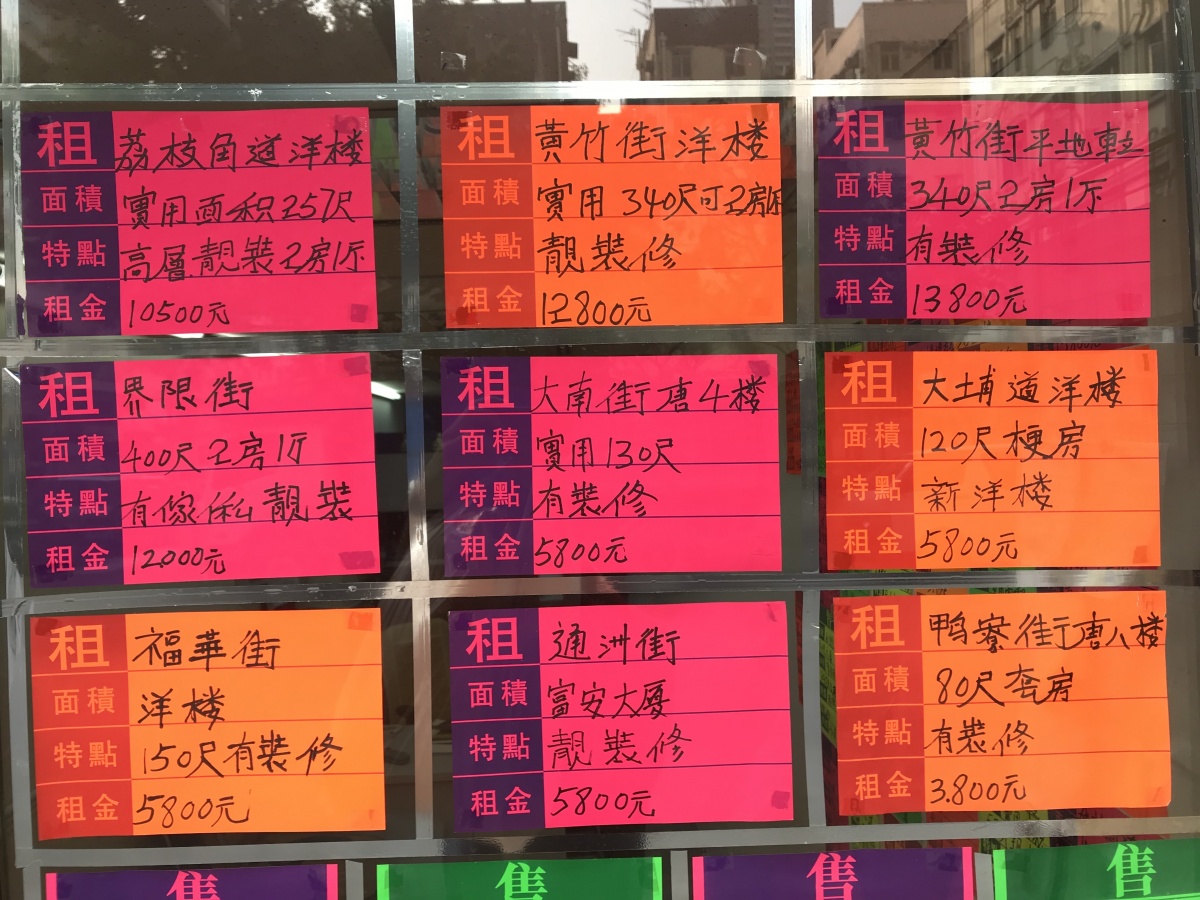 租 荔枝角道洋楼
面積 實用面积257尺
特點 高層靚裝2房1厅
租金 10500元
租 黃竹街洋楼
面積 實用340尺可2房
特點 靚裝修
租金 12800元
租 黃竹街平地車站
面積 340尺2房1厅
特點 有裝修
租金 13800元
租 界限街
面積 400尺2房1厅
特點 有傢俬靚裝
租金 12000元
租 大南街唐4楼
面積 實用130尺
特點 有裝修
租金 5800元
租 大埔道洋楼
面積 120尺梗房
特點 新洋楼
租金 5800元
租 福華街
面積 洋楼
特點 150尺有裝修
租金 5800元
租 通洲街
面積 富安大厦
特點 靚裝修
租金 5800元
租 鸭寮街唐八楼
面積 80尺套房
特點 有裝修
租金 3.800元
售
售
售
售